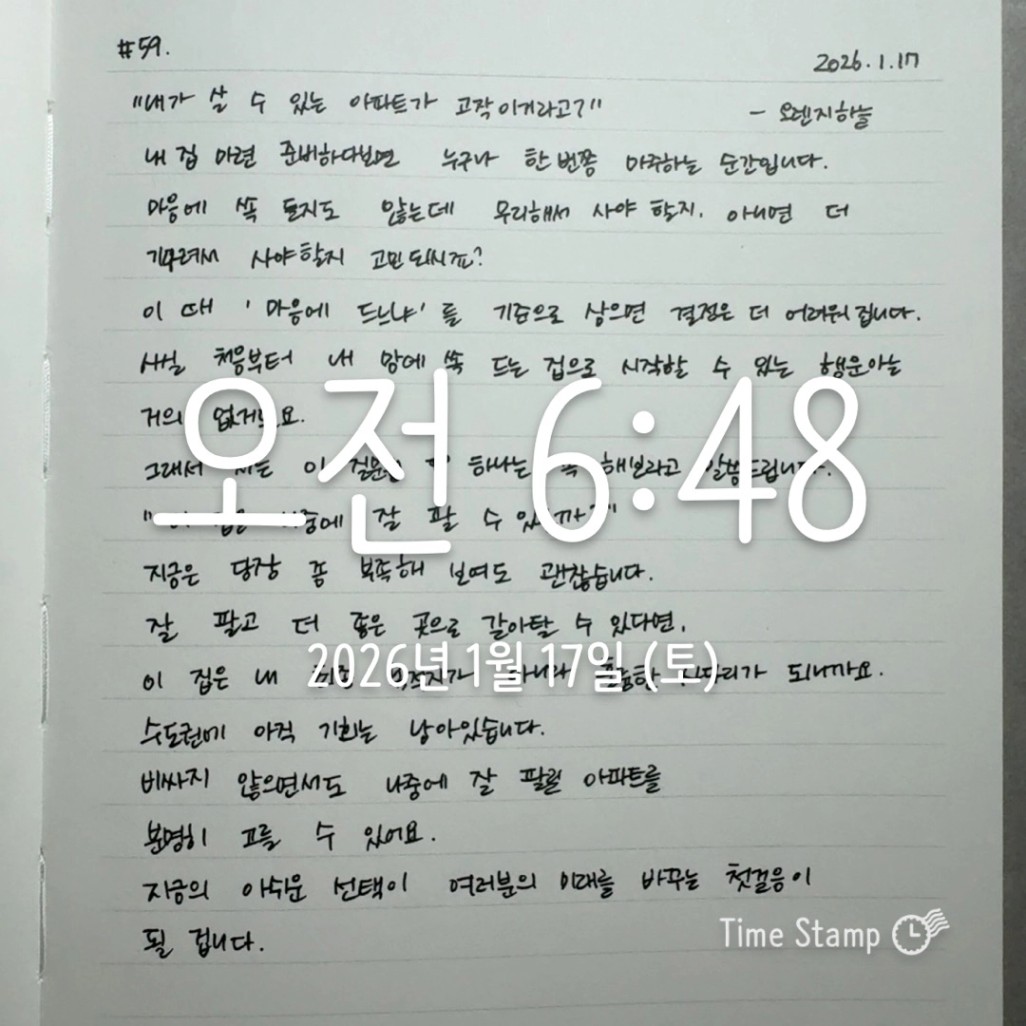 #59.
2026.1.17
"내가 살 수 있는 아파트가 고작 이거라고?"
- 오렌지하늘
내 집 마련 준비하다보면 누구나 한 번쯤 마주하는 순간입니다.
마음에 쏙 들지도 않는데 무리해서 사야 할지. 아니면 더
기다려서 사야할지 고민되시죠?
이 때 '마음에 드느냐'를 기준으로 삼으면 결정은 더 어려워집니다.
사실 처음부터 내 맘에 쏙 드는 집으로 시작할 수 있는 행운아는
거의 없거든요.
그래서 저는 이 질문을 하나는 꼭 해보라고 말씀드립니다.
"이 집은 나중에 잘 팔 수 있을까?"
오전 6:48
지금은 당장 좀 부족해 보여도 괜찮습니다.
잘 팔고 더 좋은 곳으로 갈아탈 수 있다면,
이 집은 내 아니라 훌륭한 사다리가 되니까요.
2026년 1월 17일 (토)
수도권에 아직 기회는 남아있습니다.
비싸지 않으면서도 나중에 잘 팔릴 아파트를
분명히 고를 수 있어요.
지금의 아쉬운 선택이 여러분의 미래를 바꾸는 첫걸음이
될 겁니다.
Time Stamp